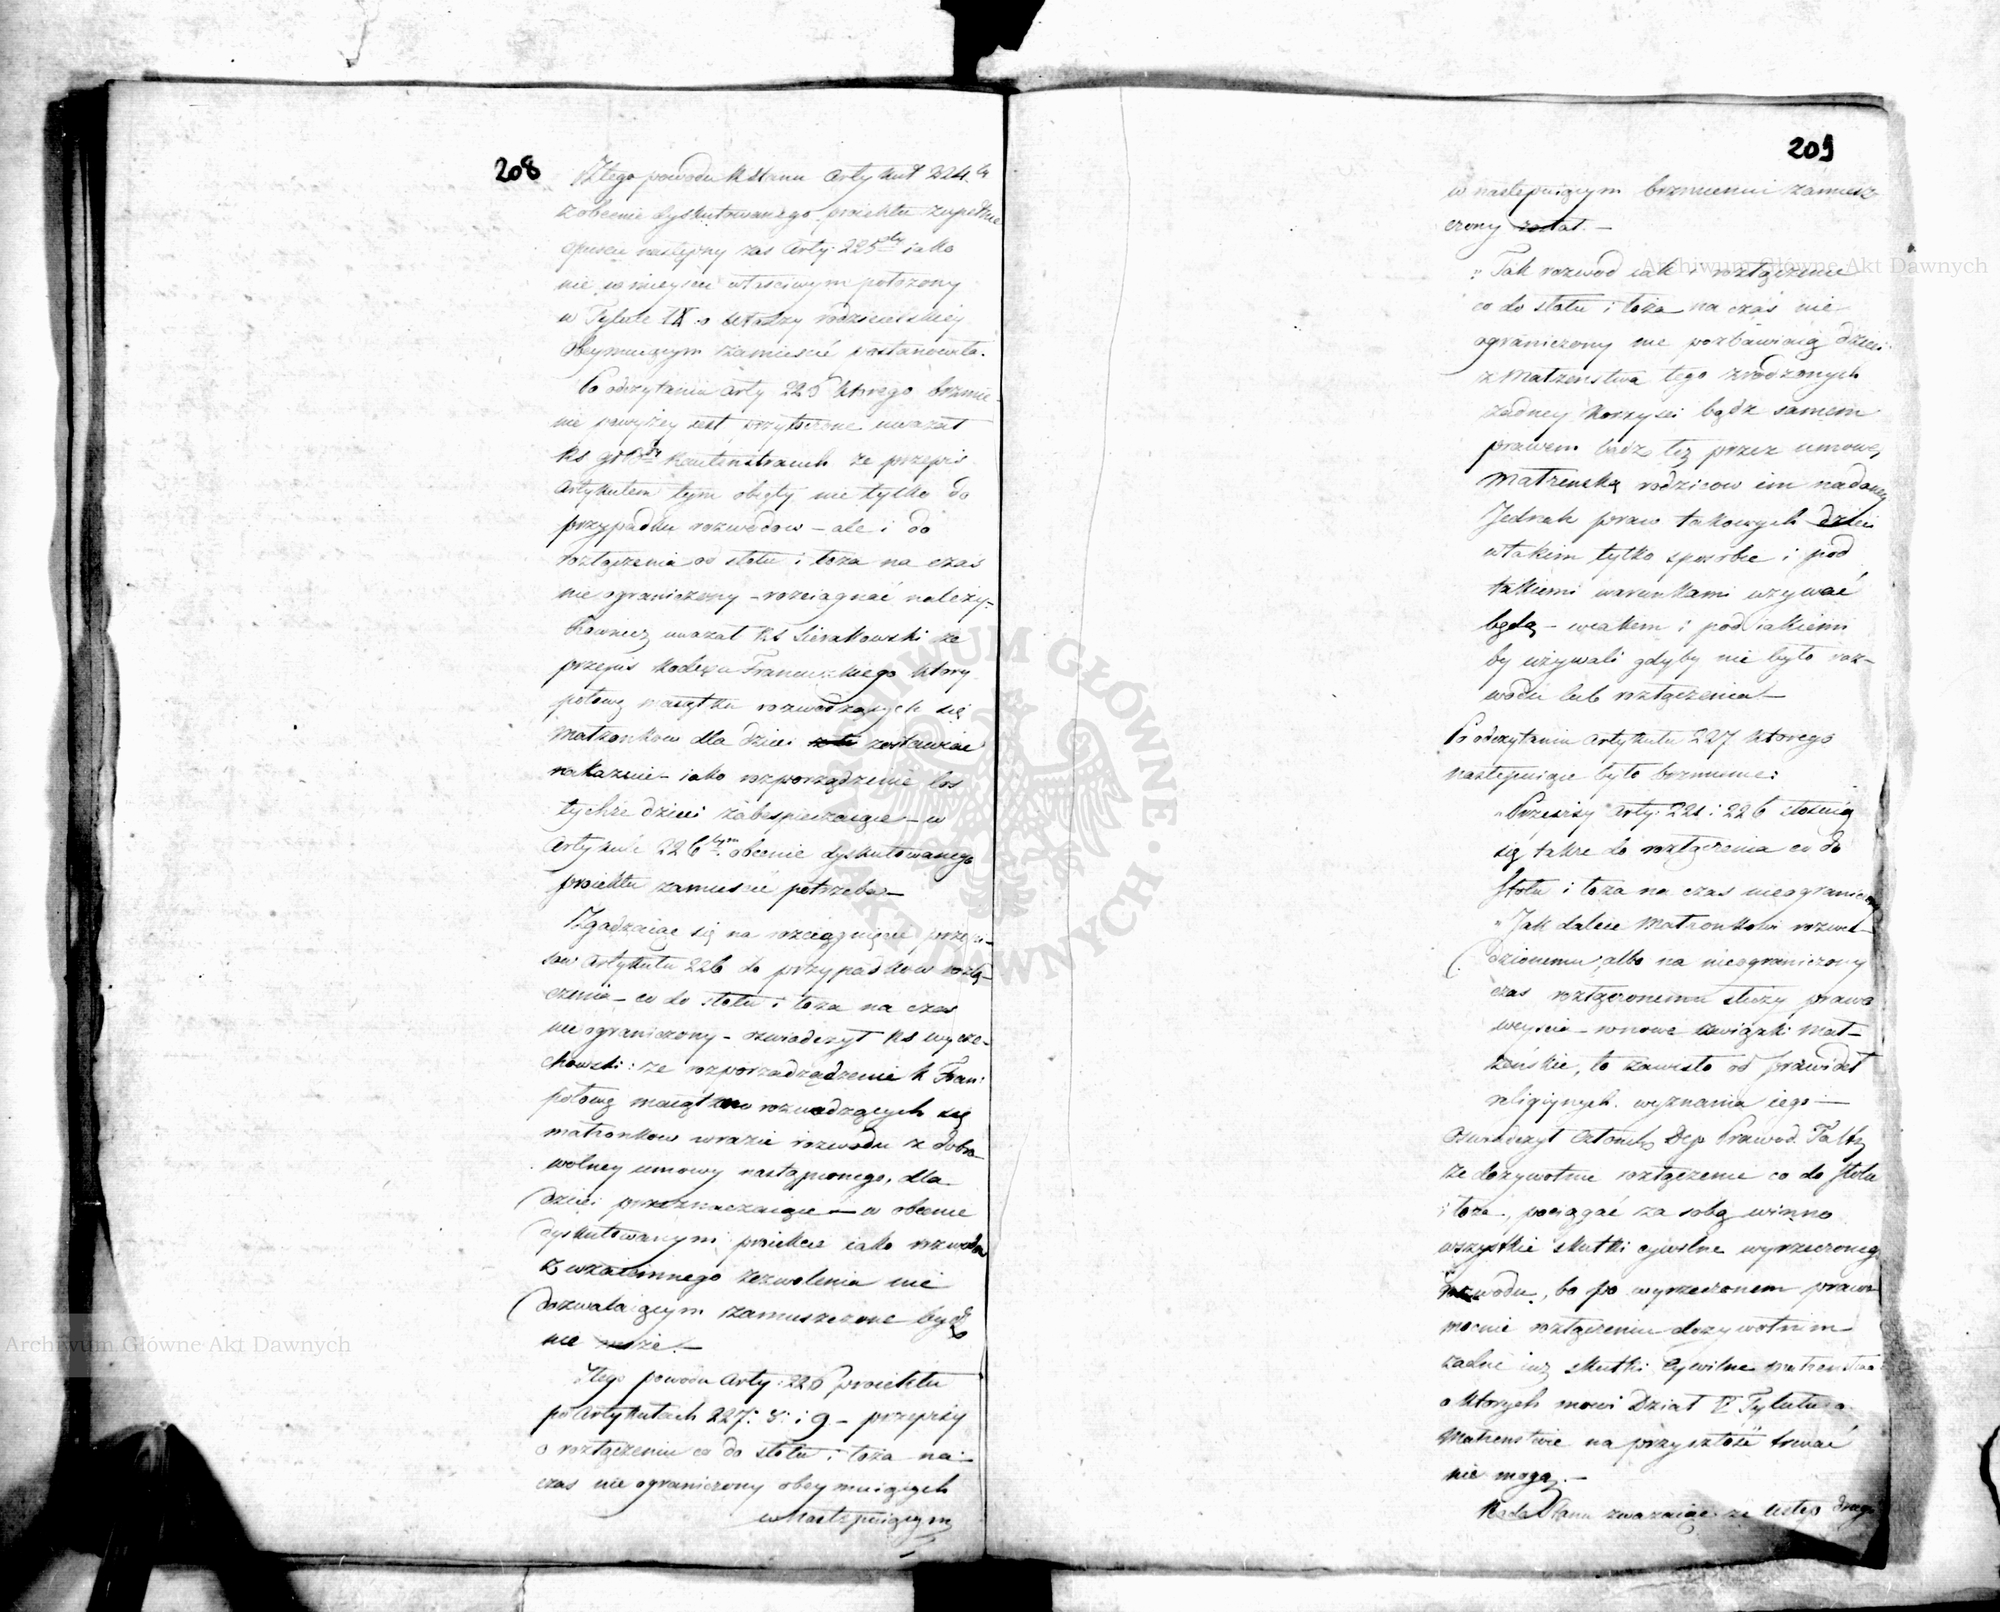 208
Z tego powodu R Stanu Artykuł 224.ty
z obecnie dyskutowanego proiektu zupełnie
opuścić następny zas Arty: 225ty iako
nie w mieyscu właściwym położony
w Tytule IX o władzy rodzicielskiey
obeymuiącym zamieścić postanowiła.
Po odczytaniu Arty 226 ktorego brzmie-
nie powyżey iest przytoczone uważał
że przepis
Artykułem tym obięty nie tylko do
przypadku rozwodow – ale i do
rozłączenia co do stołu i łoża na czas
nie ograniczony – rozciągnąć należy –
Rownież uważał Ks Sierakowski że
przepis Kodexu Francuzkiego ktory
połowę maiątku rozwodzących się
Małżonkow dla dzieci zostawiać
nakazuie – iako rozporządzenie los
tychże dzieci zabespieczaiące – w
Artykule 226tym obecnie dyskutowanego
proiektu zamieścić potrzeba –
Zgadzaiąc się na rozciągnięcie przepi-
sow Artykułu 226 do przypadkow rozłą-
czenia – co do stołu i łoża na czas
nie ograniczony – oświadczył Ks Wycze-
chowski: że rozporzadządzenie K Fran:
połowę maiątku rozwodzących się
małżonkow w razie rozwodu z dobro-
wolney umowy nastąpionego, dla
dzieci przeznaczaiące – w obecnie
dyskutowanym proiekcie iako rozwodu
z wzaiemnego zezwolenia nie
dozwalaiącym zamieszczone bydź
nie może. –
Z tego powodu Arty: 226 proiektu
po Artykułach 227. 8. i 9 – przepisy
o rozłączeniu co do stołu i łoża na
czas nie ograniczony obeymuiących
w następuiącym
209
w następuiącym brzmieniu zamiesz
czony został. –
„Tak rozwod iak i rozłączenie
co do stołu i łoża na czas nie
ograniczony nie pozbawiaią dzieci
z Małżeństwa tego zrodzonych
żadney korzyści bądź samem
prawem bądź też przez umowę
Małżeńską rodzicow im nadaney
Jednak praw takowych dzieci
w takim tylko sposobie i pod
takiemi warunkami używać
będą – w iakiem i pod iakiemi
by używali gdyby nie było roz-
wodu lub rozłączenia –
Po odczytaniu Artykułu 227 ktorego
następuiące było brzmienie:
„Przepisy Arty: 221 i 226 stosuią
się także do rozłączenia co do
stołu i łoża na czas nieograniczony
„Jak dalece Małżonkowi rozwie-
dzionemu albo na nieograniczony
czas rozłączonemu służy prawo
weyścia w nowe związki mał-
żeńskie, to zawisło od prawideł
religiynych wyznania iego –
Oświadczył Członek Dep Prawod.
że dożywotnie rozłączenie co do stołu
i łoża, pociągać za sobą winno
wszystkie skutki cywilne wyrzeczonego
rozwodu, bo po wyrzeczonem prawo
mocnie rozłączeniu dożywotnim
żadne iuż skutki Cywilne małżeństwa
o ktorych mowi Dział V Tytułu o
Małżeństwie na przyszłość trwać
nie mogą. –
Rada Stanu zważaiąc że ustęp drugi
Archiwum Główne Akt Dawnych
Archiwum Główne Akt Dawnych
ARCHIWUM GŁÓWNE AKT DAWNYCH